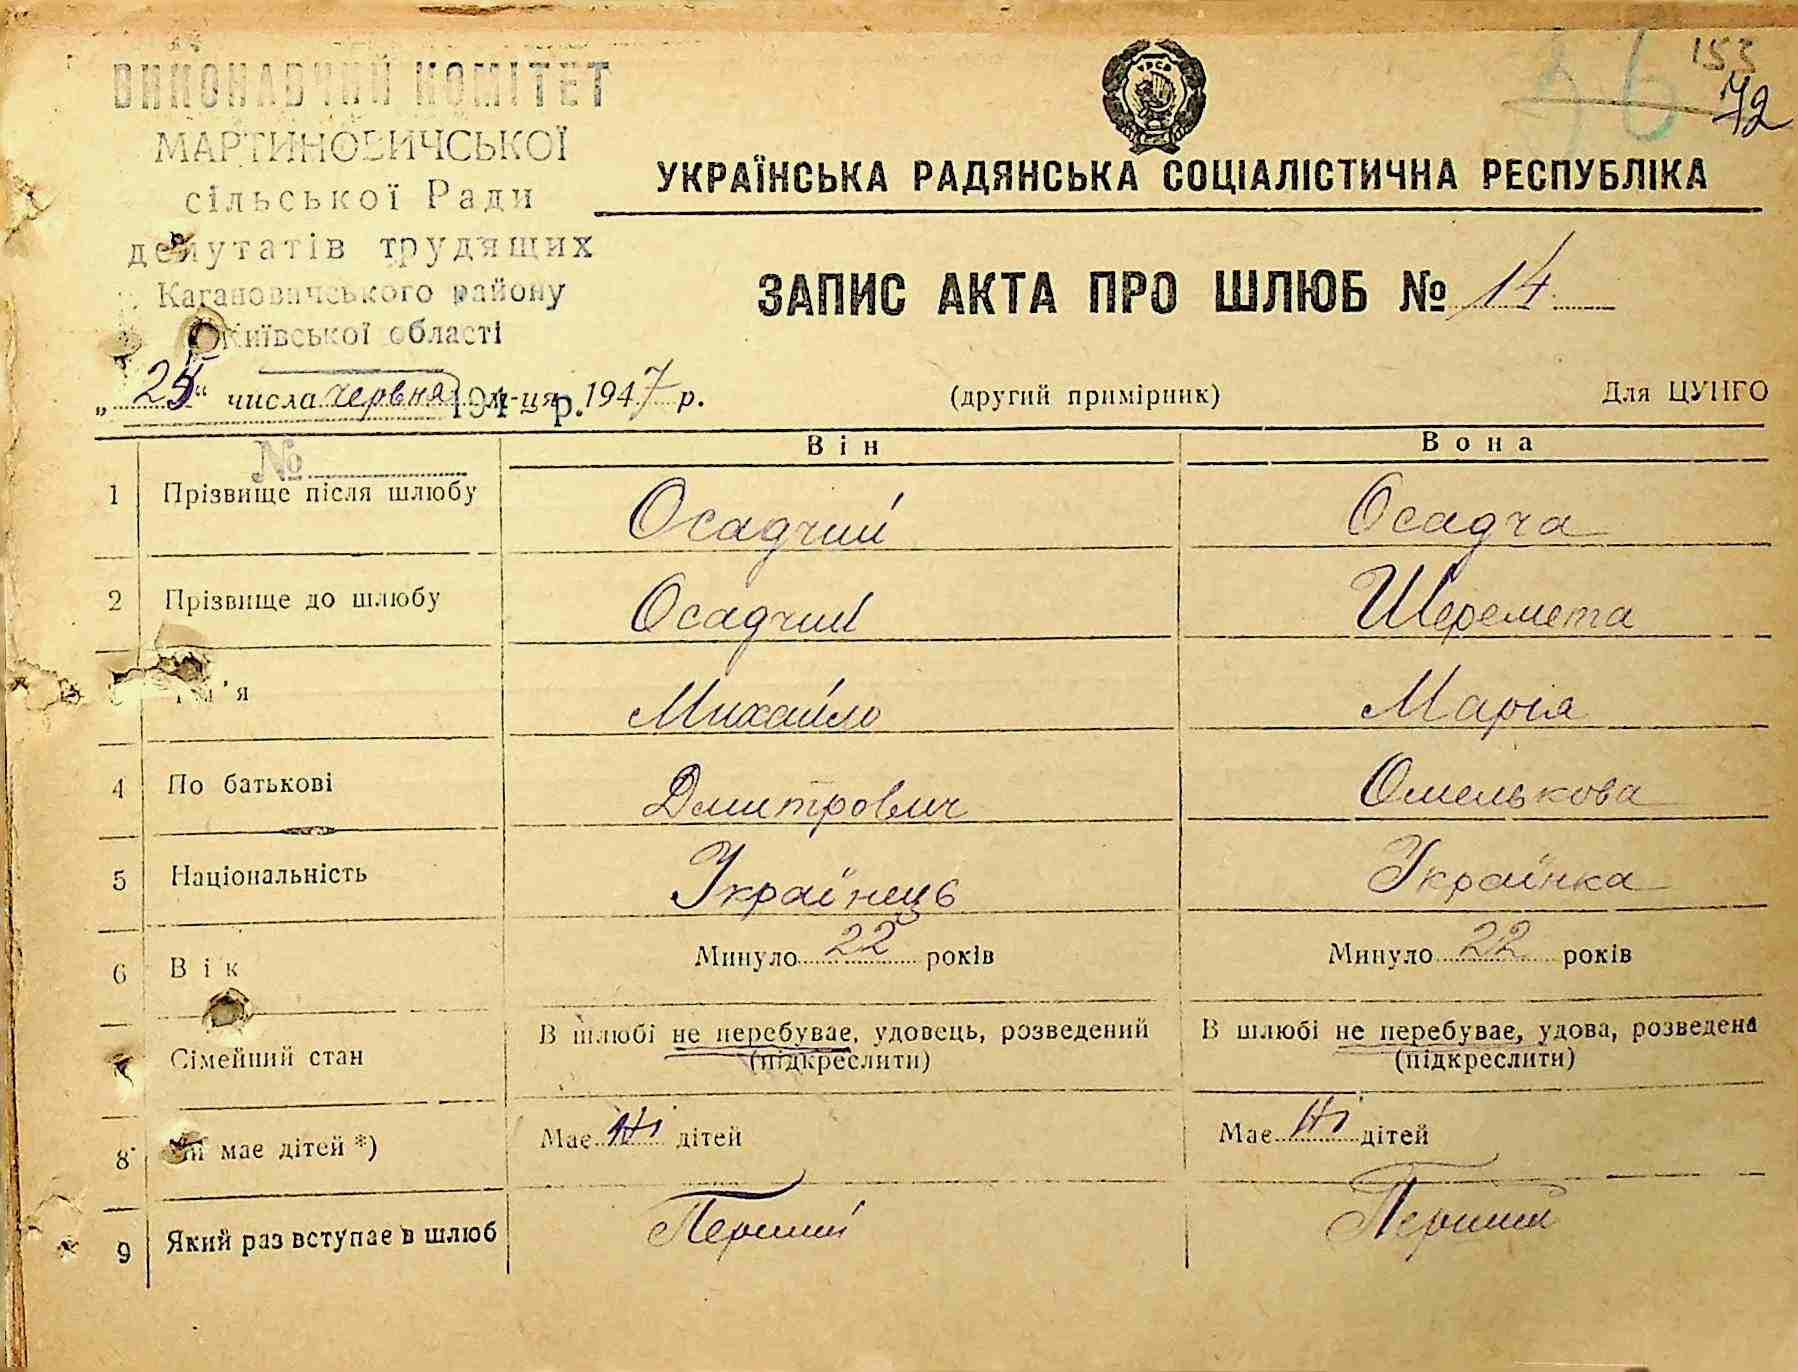 153
72
ВИКОНАВЧИЙ КОМІТЕТ
МАРТИНОВИЧСЬКОЇ
сільської Ради
депутатів трудящих
Кагановичського району
Київської області
194 р.
№
УРСР
УКРАЇНСЬКА РАДЯНСЬКА СОЦІАЛІСТИЧНА РЕСПУБЛІКА
ЗАПИС АКТА ПРО ШЛЮБ № 14
„25“ числа червня м-ця 1947 р. (другий примірник) Для ЦУНГО
Він Вона
1 Прізвище після шлюбу Осадчий Осадча
2 Прізвище до шлюбу Осадчий Шеремета
Ім'я Михайло Марія
4 По батькові Дмитрович Омелькова
5 Національність Українець Українка
6 Вік Минуло 22 років Минуло 22 років
Сімейний стан В шлюбі не перебуває, удовець, розведений В шлюбі не перебуває, удова, розведена
(підкреслити) (підкреслити)
8 Чи має дітей *) Має Ні дітей Має Ні дітей
9 Який раз вступає в шлюб Перший Перший